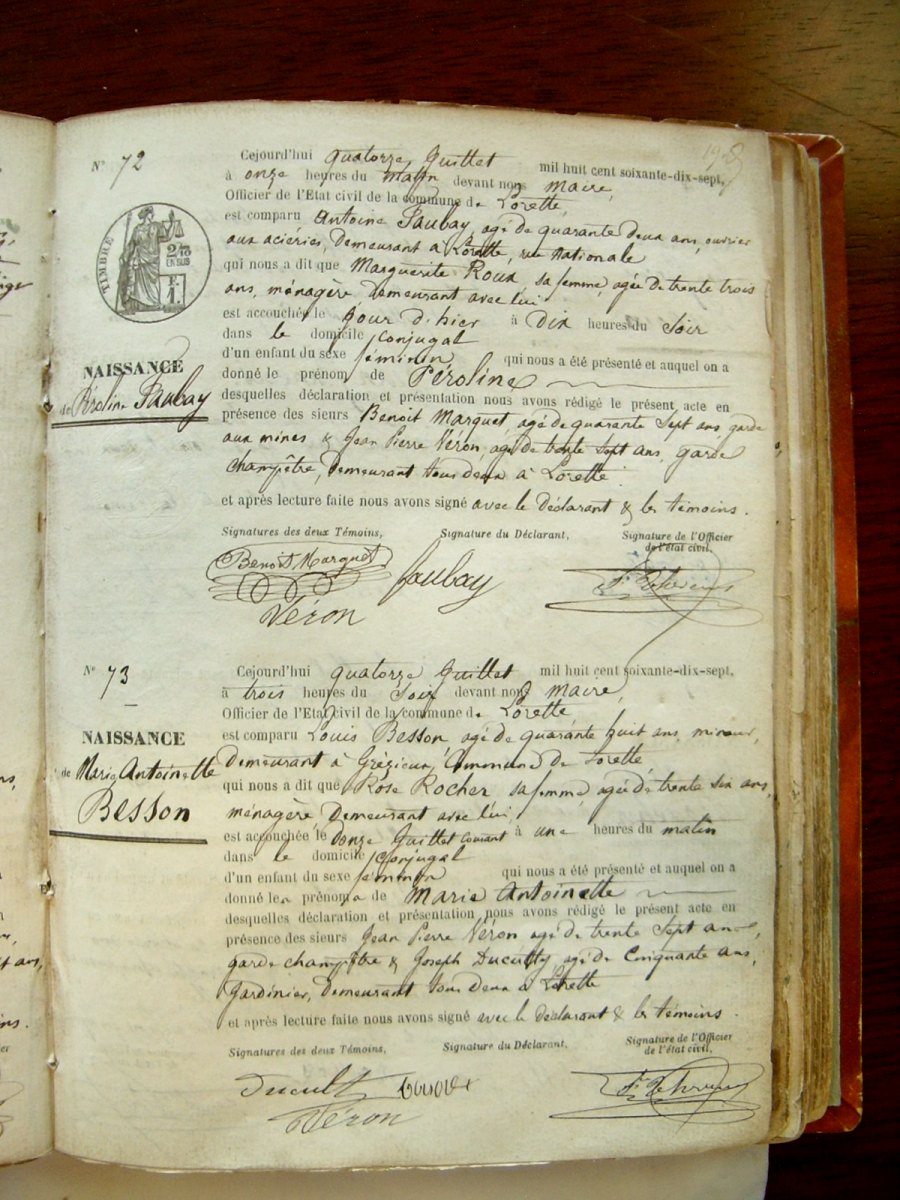 N° 72
Cejourd'hui quatorze Juillet mil huit cent soixante-dix-sept,
à onze heures du matin devant nous maire,
Officier de l'Etat civil de la commune de Lorette
est comparu Antoine Saubay, agé de quarante deux ans, ouvrier
aux aciéries, demeurant à Lorette, rue Nationale
qui nous a dit que Marguerite Roux sa femme, agée de trente trois
ans, ménagère, demeurant avec lui
est accouchée le jour d'hier à dix heures du soir
dans le domicile conjugal
d'un enfant du sexe féminin qui nous a été présenté et auquel on a
donné le prénom de Péroline
desquelles déclaration et présentation nous avons rédigé le présent acte en
présence des sieurs Benoit Marquet, agé de quarante sept ans, garde
aux mines & Jean Pierre Véron, agé de trente sept ans, garde
champêtre, demeurant tous deux à Lorette.
et après lecture faite nous avons signé avec le déclarant & les témoins.
TIMBRE
2/10
EN SUS
NAISSANCE
de Péroline Saubay
Signatures des deux Témoins,
Signature du Déclarant,
Signature de l'Officier
de l'état civil,
Benoit Marquet
Saubay
Véron
N° 73
Cejourd'hui quatorze Juillet mil huit cent soixante-dix-sept,
à trois heures du soir devant nous maire,
Officier de l'Etat civil de la commune de Lorette
est comparu Louis Besson, agé de quarante huit ans, mineur,
demeurant à Grézieux, Commune de Lorette,
qui nous a dit que Rose Rocher sa femme, agée de trente six ans,
ménagère, demeurant avec lui,
est accouchée le douze Juillet courant à une heures du matin
dans le domicile conjugal
d'un enfant du sexe féminin qui nous a été présenté et auquel on a
donné les prénoms de Marie Antoinette
desquelles déclaration et présentation nous avons rédigé le présent acte en
présence des sieurs Jean Pierre Véron agé de trente sept ans,
garde champêtre & Joseph Ducultty agé de Cinquante ans,
Jardinier, demeurant tous deux à Lorette
et après lecture faite nous avons signé avec le déclarant & les témoins.
NAISSANCE
de Marie Antoinette
Besson
Signatures des deux Témoins,
Signature du Déclarant,
Signature de l'Officier
de l'état civil,
Véron